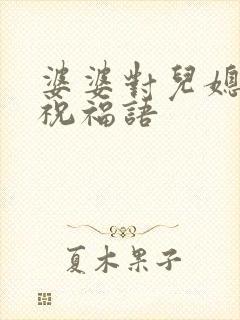 婆婆對兒媳
祝福語
夏木果子